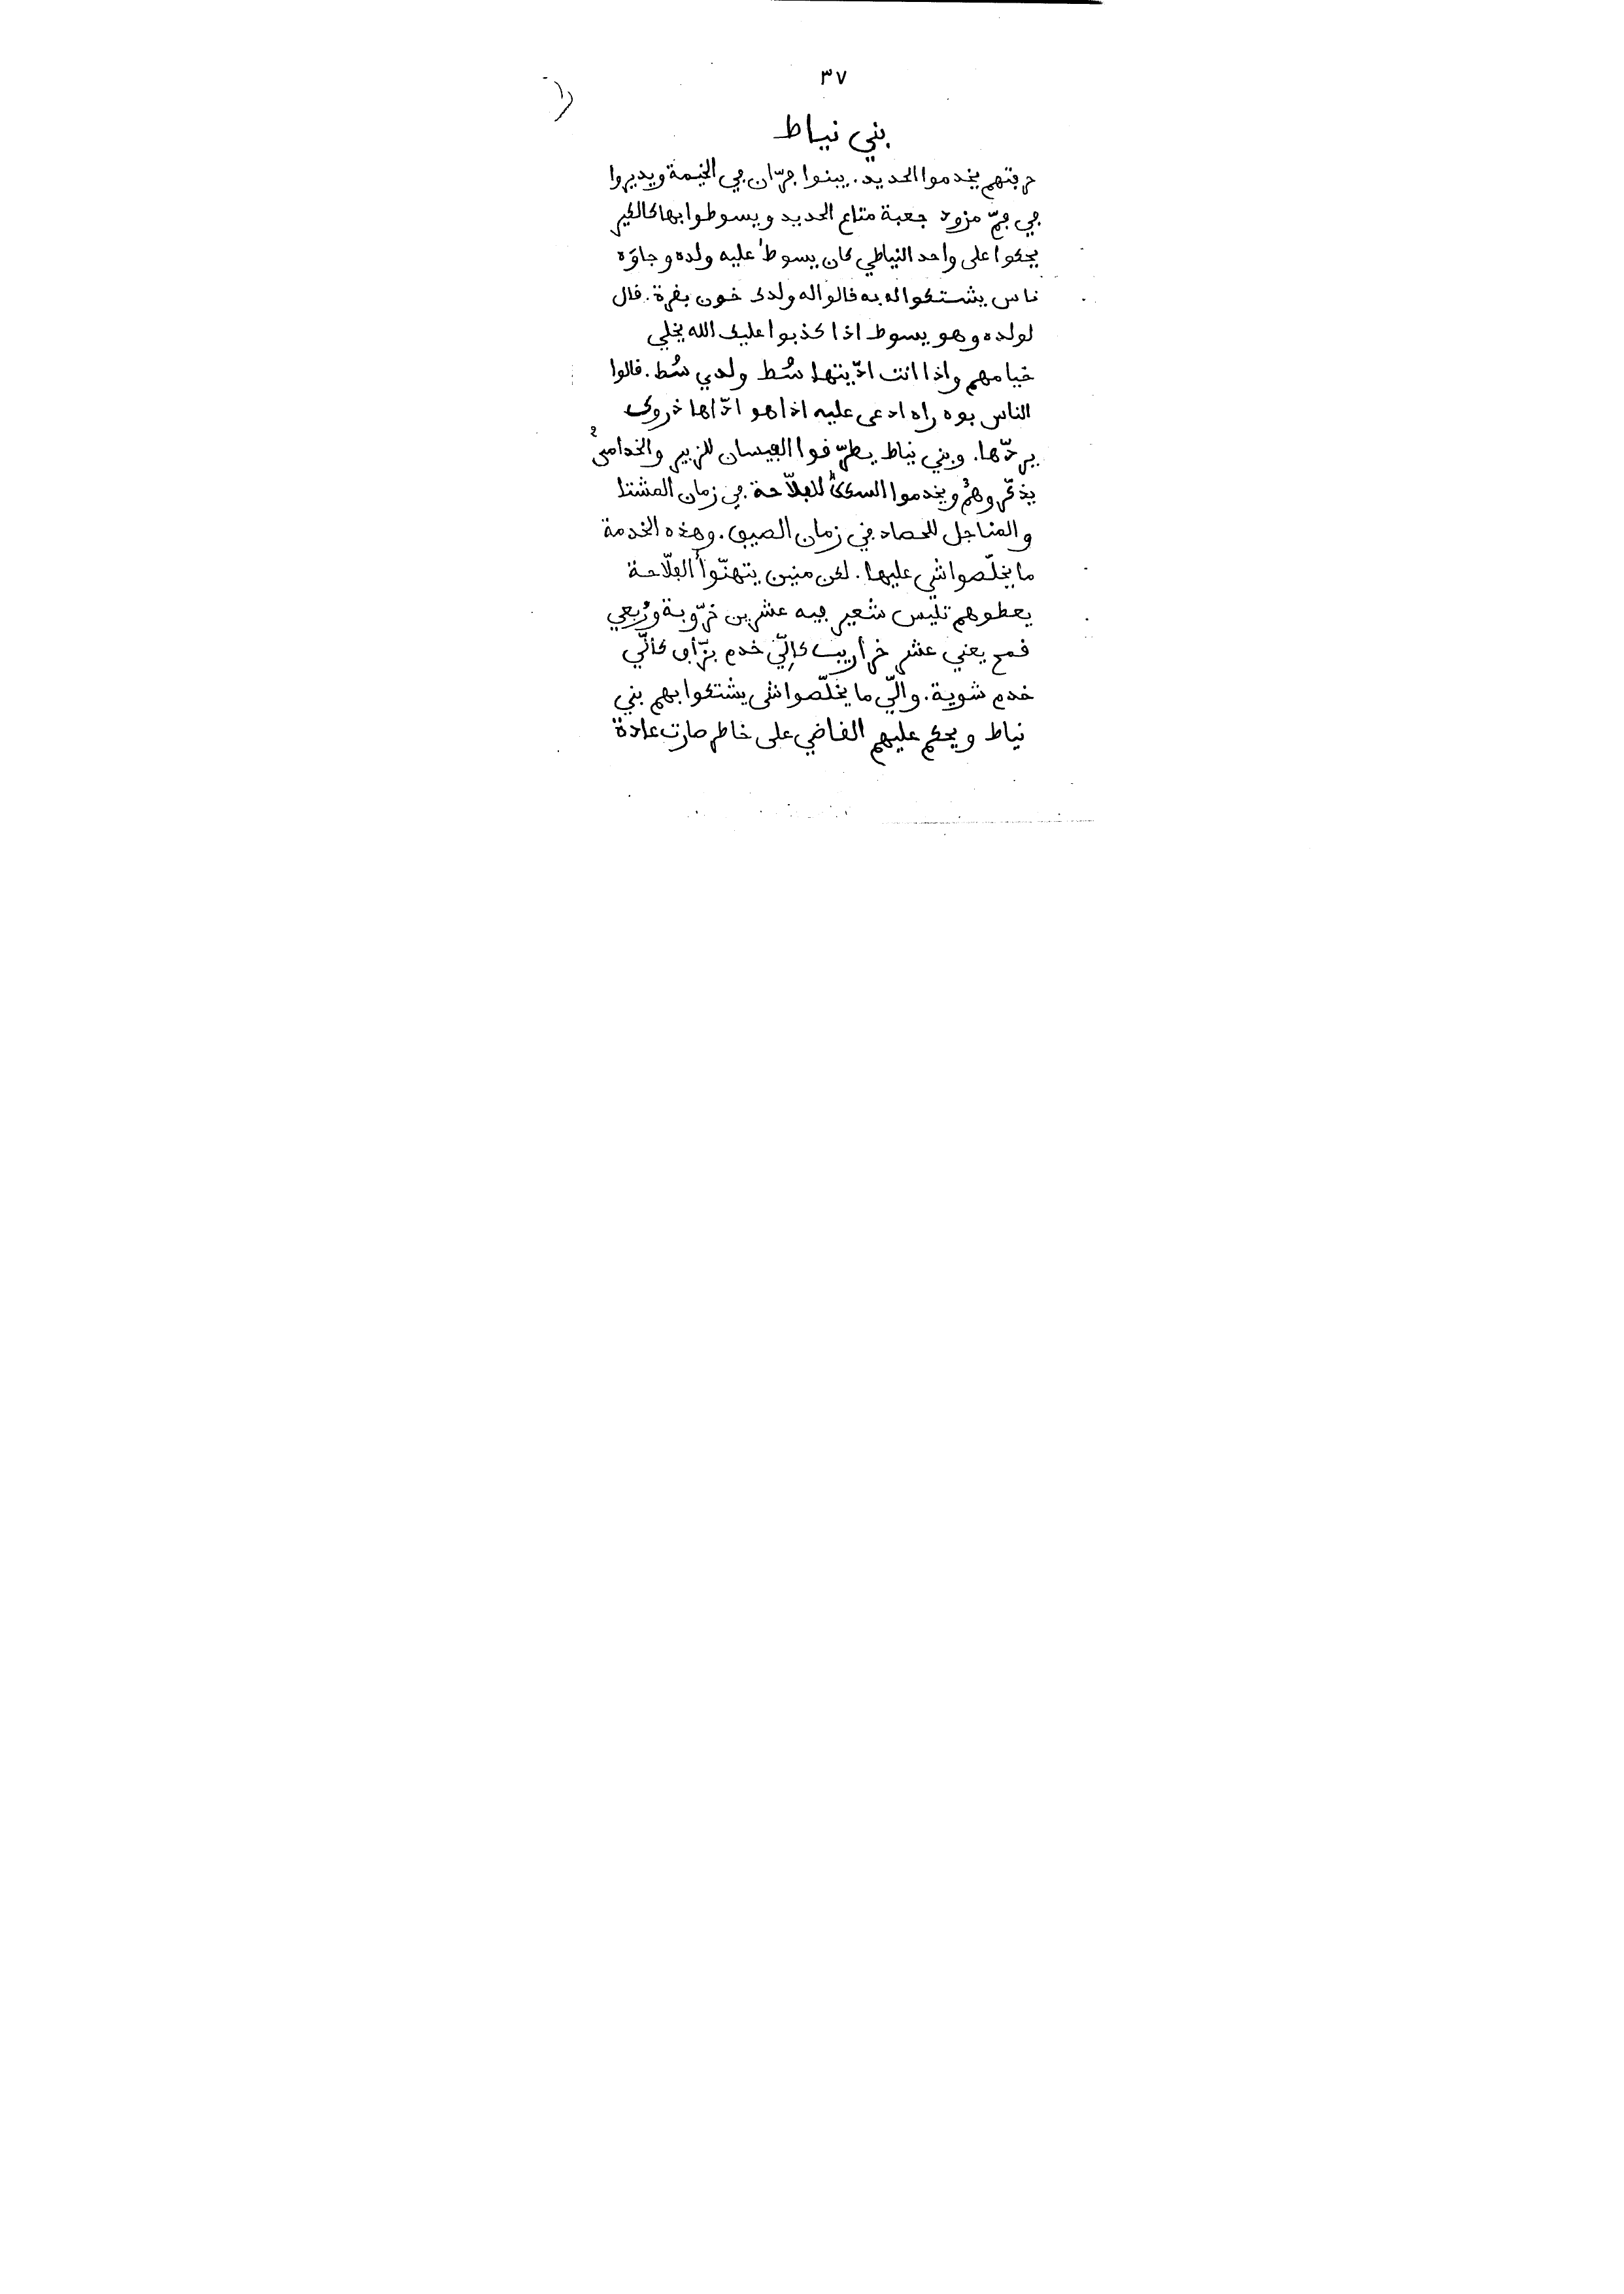 ٣٧
بني نياط
حرڢتهم يخدموا الحديد. يبنوا ڢرّان ڢي الخيمة ويديروا
ڢي ڢمّ مزود جعبة متاع الحديد ويسوطوا بها كالكير
يحكوا على واحد النياطي كان يسوط عليه ولده وجاوَه
ناس يشتكوا له به فالوا له ولدك خون بفرة. فال
لولده وهو يسوط اذا كذبوا عليك الله يخلي
خيامهم واذا انت ادّيتها سُط ولدي سُط. فالوا
الناس بوه راه ادعى عليه اذا هو ادّاها دروك
يردّها. وبني نياط يطرّفوا الڢيسان للزبير والخدامي
يذكّروهُم ويخدموا السكك للڢلّاحة ڢي زمان المشتا
والمناجل للحصاد في زمان الصيڢ. وهذه الخدمة
ما يخلّصوا شي عليها. لكن منين يتهنّوا الڢلّاحة
يعطوهم تليس شعير ڢيه عشرين خرّوبة ورُبعي
فمح يعني عشر خراريب كالِّي خدم بزّاڢ كالّي
خدم شوية. والّي ما يخلّصوا شي يشتكوا بهم بني
نياط ويحكم عليهم الفاضي على خاطر صارت عادة